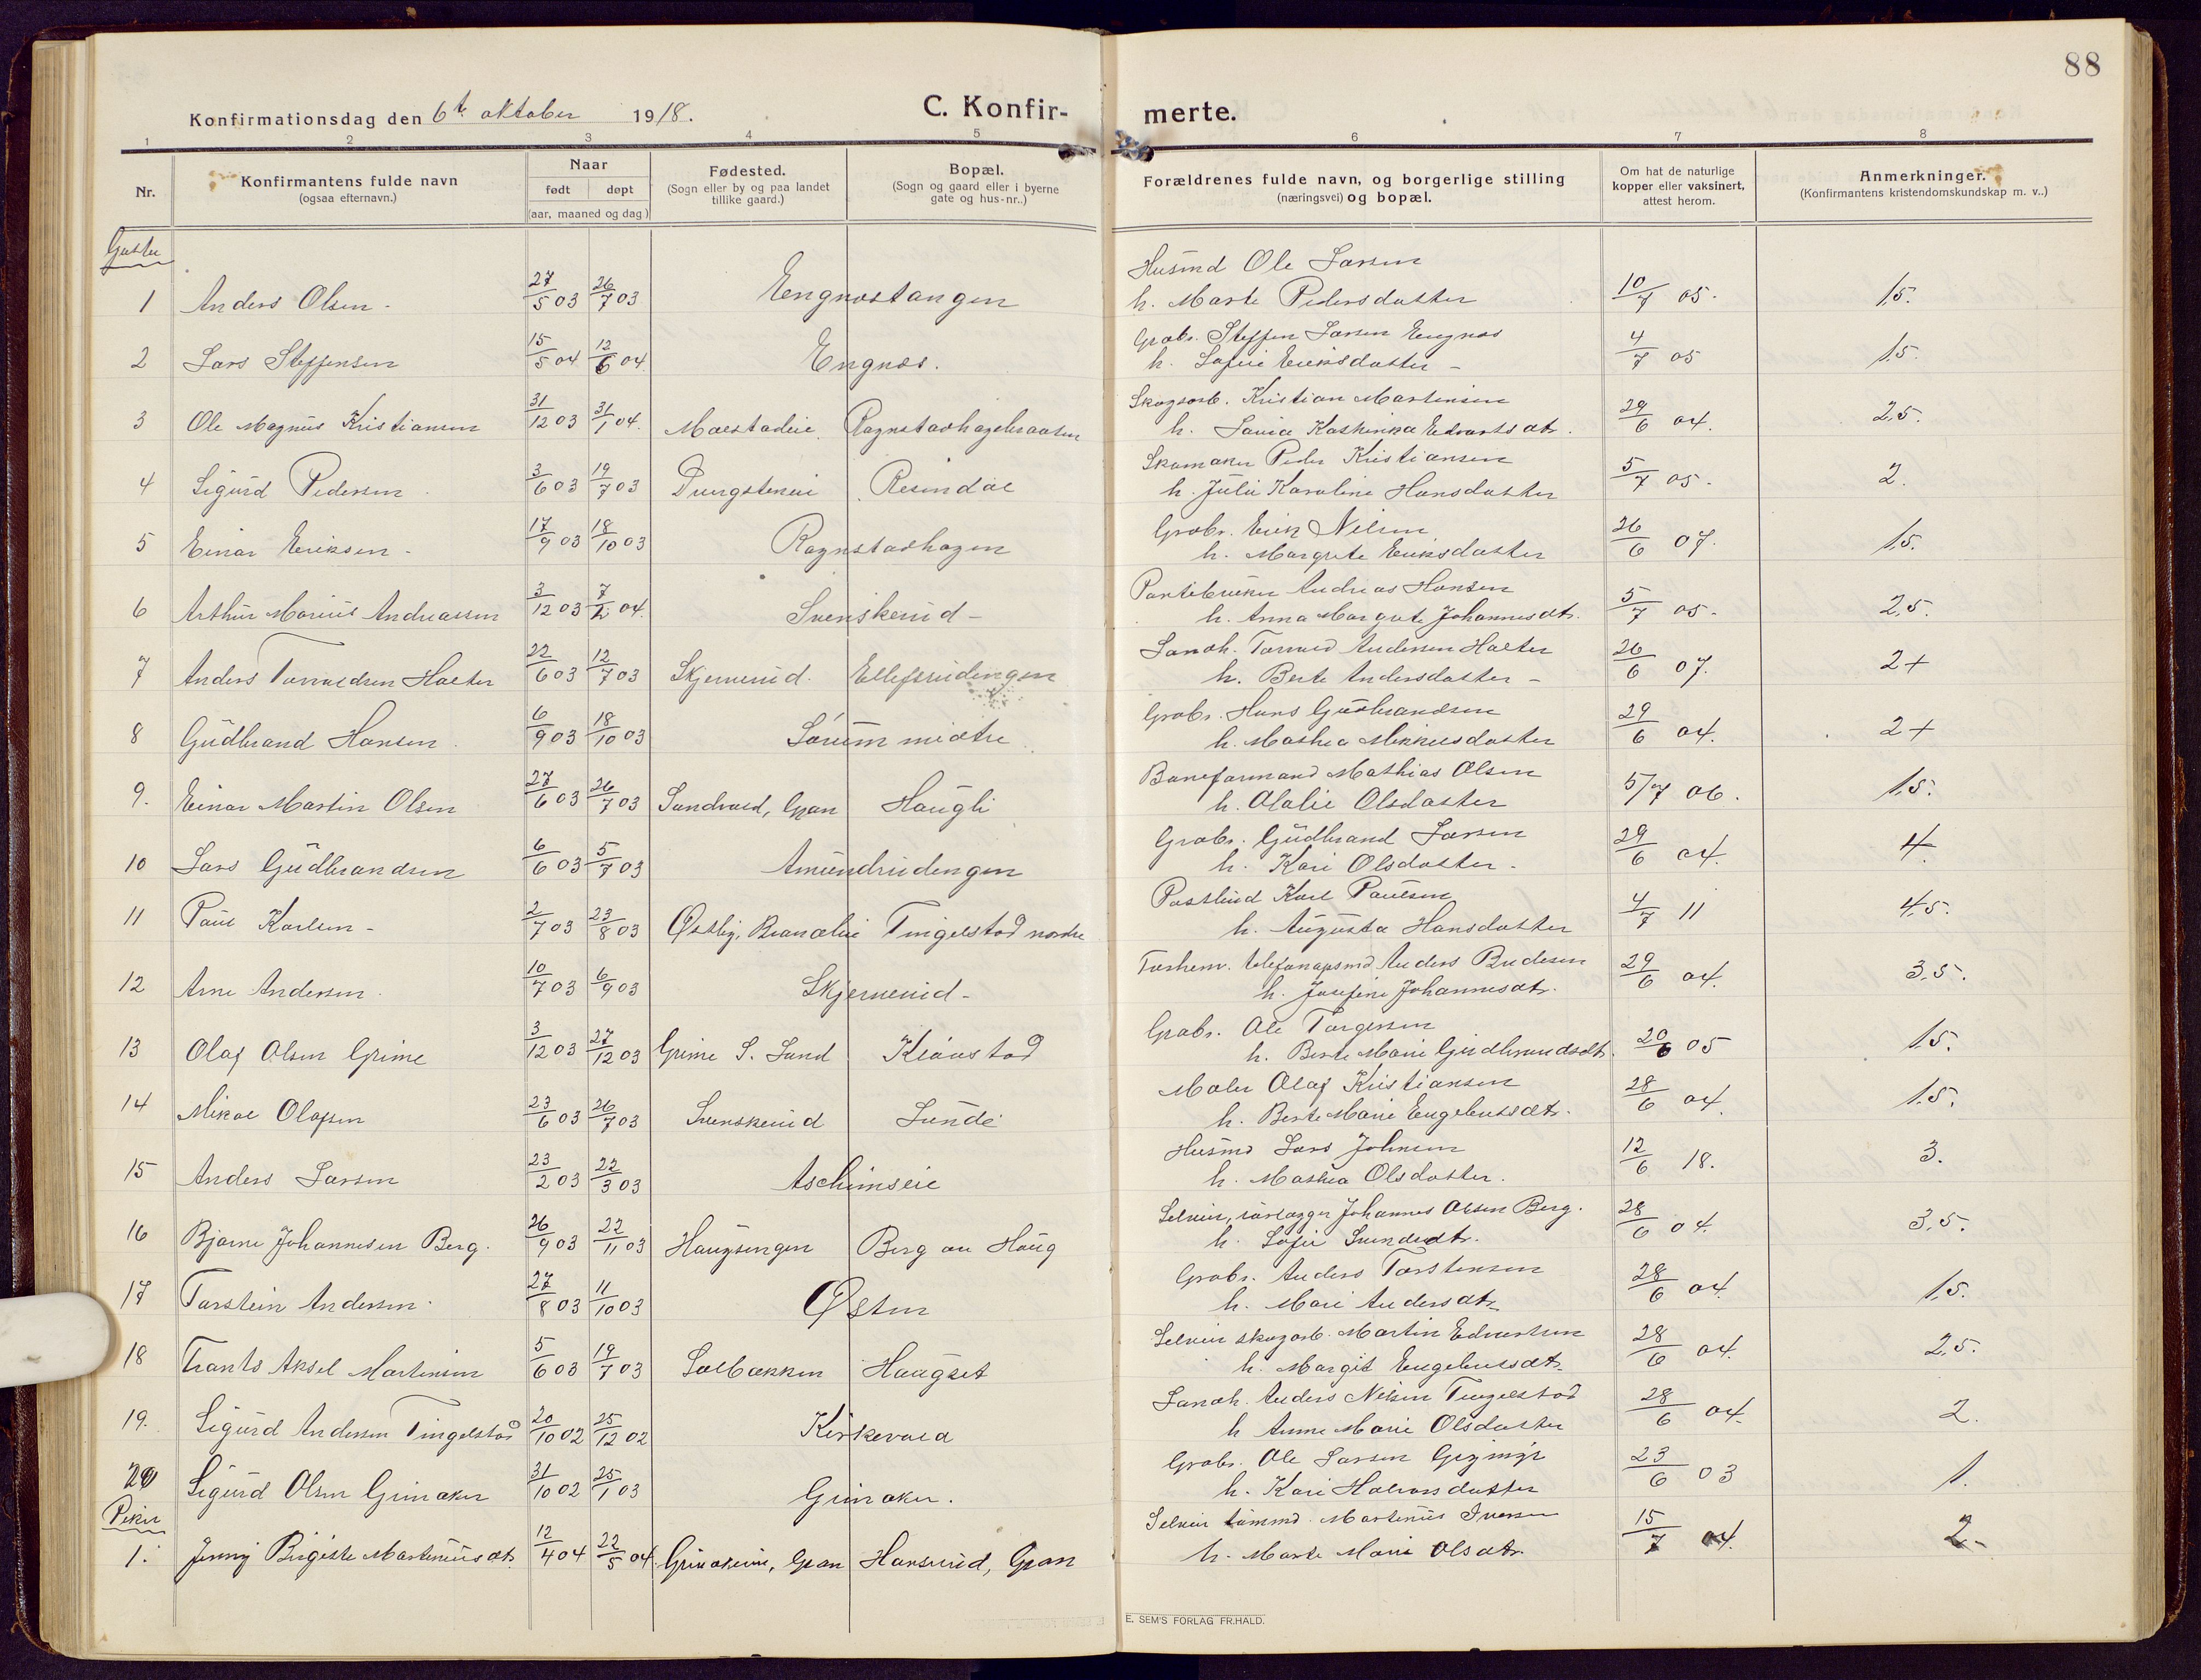 88
Konfirmationsdag den 6te oktober 1918. C. Konfir-merte.
1 2 3 4 5 6 7 8
Nr. Konfirmantens fulde navn (ogsaa efternavn.) Naar født døpt (aar, maaned og dag) Fødested. (Sogn eller by og paa landet tillike gaard.) Bopæl. (Sogn og gaard eller i byerne gate og hus-nr..) Forældrenes fulde navn, og borgerlige stilling (næringsvei) og bopæl. Om hat de naturlige kopper eller vaksinert, attest herom. Anmerkninger. (Konfirmantens kristendomskundskap m. v..)
Gutter
1 Anders Olsen - 27/5 03 26/7 03 Engnæstangen Husmd Ole Larsen h. Marte Pedersdatter 10/7 05. 1,5.
2 Lars Steffensen 15/5 04 12/6 04. Engnæs. Grdbr. Steffen Larsen Engnæs h. Sofie Eriksdatter - 4/7 05 1,5.
3 Ole Magnus Kristiansen 31/12 03 31/1 04. Molstadeie Ragnstadhagebraaten Skogsarb. Kristian Martinsen h. Lavia Kathinka Edvartsdtr. 29/6 04. 2,5.
4 Sigurd Pedersen 3/6 03 19/7 03 Resendal Skomaker Peder Kristiansen h. Julie Karoline Hansdatter 5/7 05. 2.
5 Einar Eriksen - 17/9 03 18/10 03 Ragnstadhagen Grdbr. Erik Nilsen h. Margrete Eriksdatter 26/6 07. 1,5.
6 Arthur Marius Andreassen 3/12 03 7/2 04. Svenskerud - Andreas Hansen h. Anna Margrete Johannesdtr. 5/7 05. 2,5.
7 Anders Torvaldsen Halter 22/6 03 12/7 03 Skjerverud. Ellefsrudengen Landh. Torvald Andersen Halter h. Berte Andersdatter - 26/6 07. 2+
8 Gudbrand Hansen. 6/9 03 18/10 03 Sørum midtre Grdbr. Hans Gudbrandsen h. Mathea Mikkelsdatter 29/6 04. 2+
9. Einar Martin Olsen 27/6 03 26/7 03 Sandvold, Gran Haugli Baneformand Mathias Olsen h. Olalie Olsdatter 5/7 06. 1,5.
10 Lars Gudbrandsen 6/6 03 5/7 03 Amundrudengen Grdbr. Gudbrand Larsen h. Kari Olsdatter. 29/6 04. 4.
11 Paul Karlsen - 2/7 03 23/8 03 Østby, Brandbu Tingelstad nordre Postbud Karl Paulsen h. Augusta Hansdatter 4/7 11 4,5.
12 Arne Andersen. 10/7 03 6/9 03 Skjerverud - Forhenv. telefonopsmd Anders Budesen h. Josefine Johannesdtr. 29/6 04. 3,5.
13 Olaf Olsen Grime 3/12 03 27/12 03 Grime S. Land Klæustad Grdbr. Ole Torgersen h. Berte Marie Gudbrandsdtr. 20/6 05 1,5.
14 Mikal Olafsen 23/6 03 26/7 03 Svenskerud Lunde Maler Olaf Kristiansen h. Berte Marie Engebretsdtr. 28/6 04. 1,5.
15 Anders Larsen 23/2 03 22/3 03 Aschimseie Husmd Lars Johnsen h. Mathea Olsdatter. 12/6 18. 3.
16 Bjarne Johannesen Berg. 26/9 03 22/11 03 Haugsengen Berg av Haug Selveier, rørlægger Johannes Olsen Berg. h. Sofie Svendsdtr. 28/6 04. 3,5.
17 Torstein Andersen. 27/8 03 11/10 03 Østen Grdbr. Anders Torstensen h. Mari Andersdtr. 28/6 04. 1,5.
18 Frants Aksel Martinsen 5/6 03 19/7 03 Solbakken Haugset Selveier skogarb. Martin Edvartsen h. Margit Engebretsdtr. 28/6 04. 2,5.
19. Sigurd Andersen Tingelstad 20/10 02 25/12 02 Kirkevold Landh. Anders Nilsen Tingelstad h Anne Marie Olsdatter 28/6 04. 2.
20 Sigurd Olsen Grinaker 31/10 02 25/1 03 Grinaker. Grdbr. Ole Larsen Gryingr h. Kari Halvorsdatter 23/6 03 1.
Piker
1. Jenny Birgitte Martiniusdtr. 12/4 04 22/5 04. Grinakereie, Gran Hansrud, Gran Selveier tømmd. Martinius Iversen h. Marte Marie Olsdtr. 15/7 04. 2 -
E. SEM'S FORLAG FR.HALD.